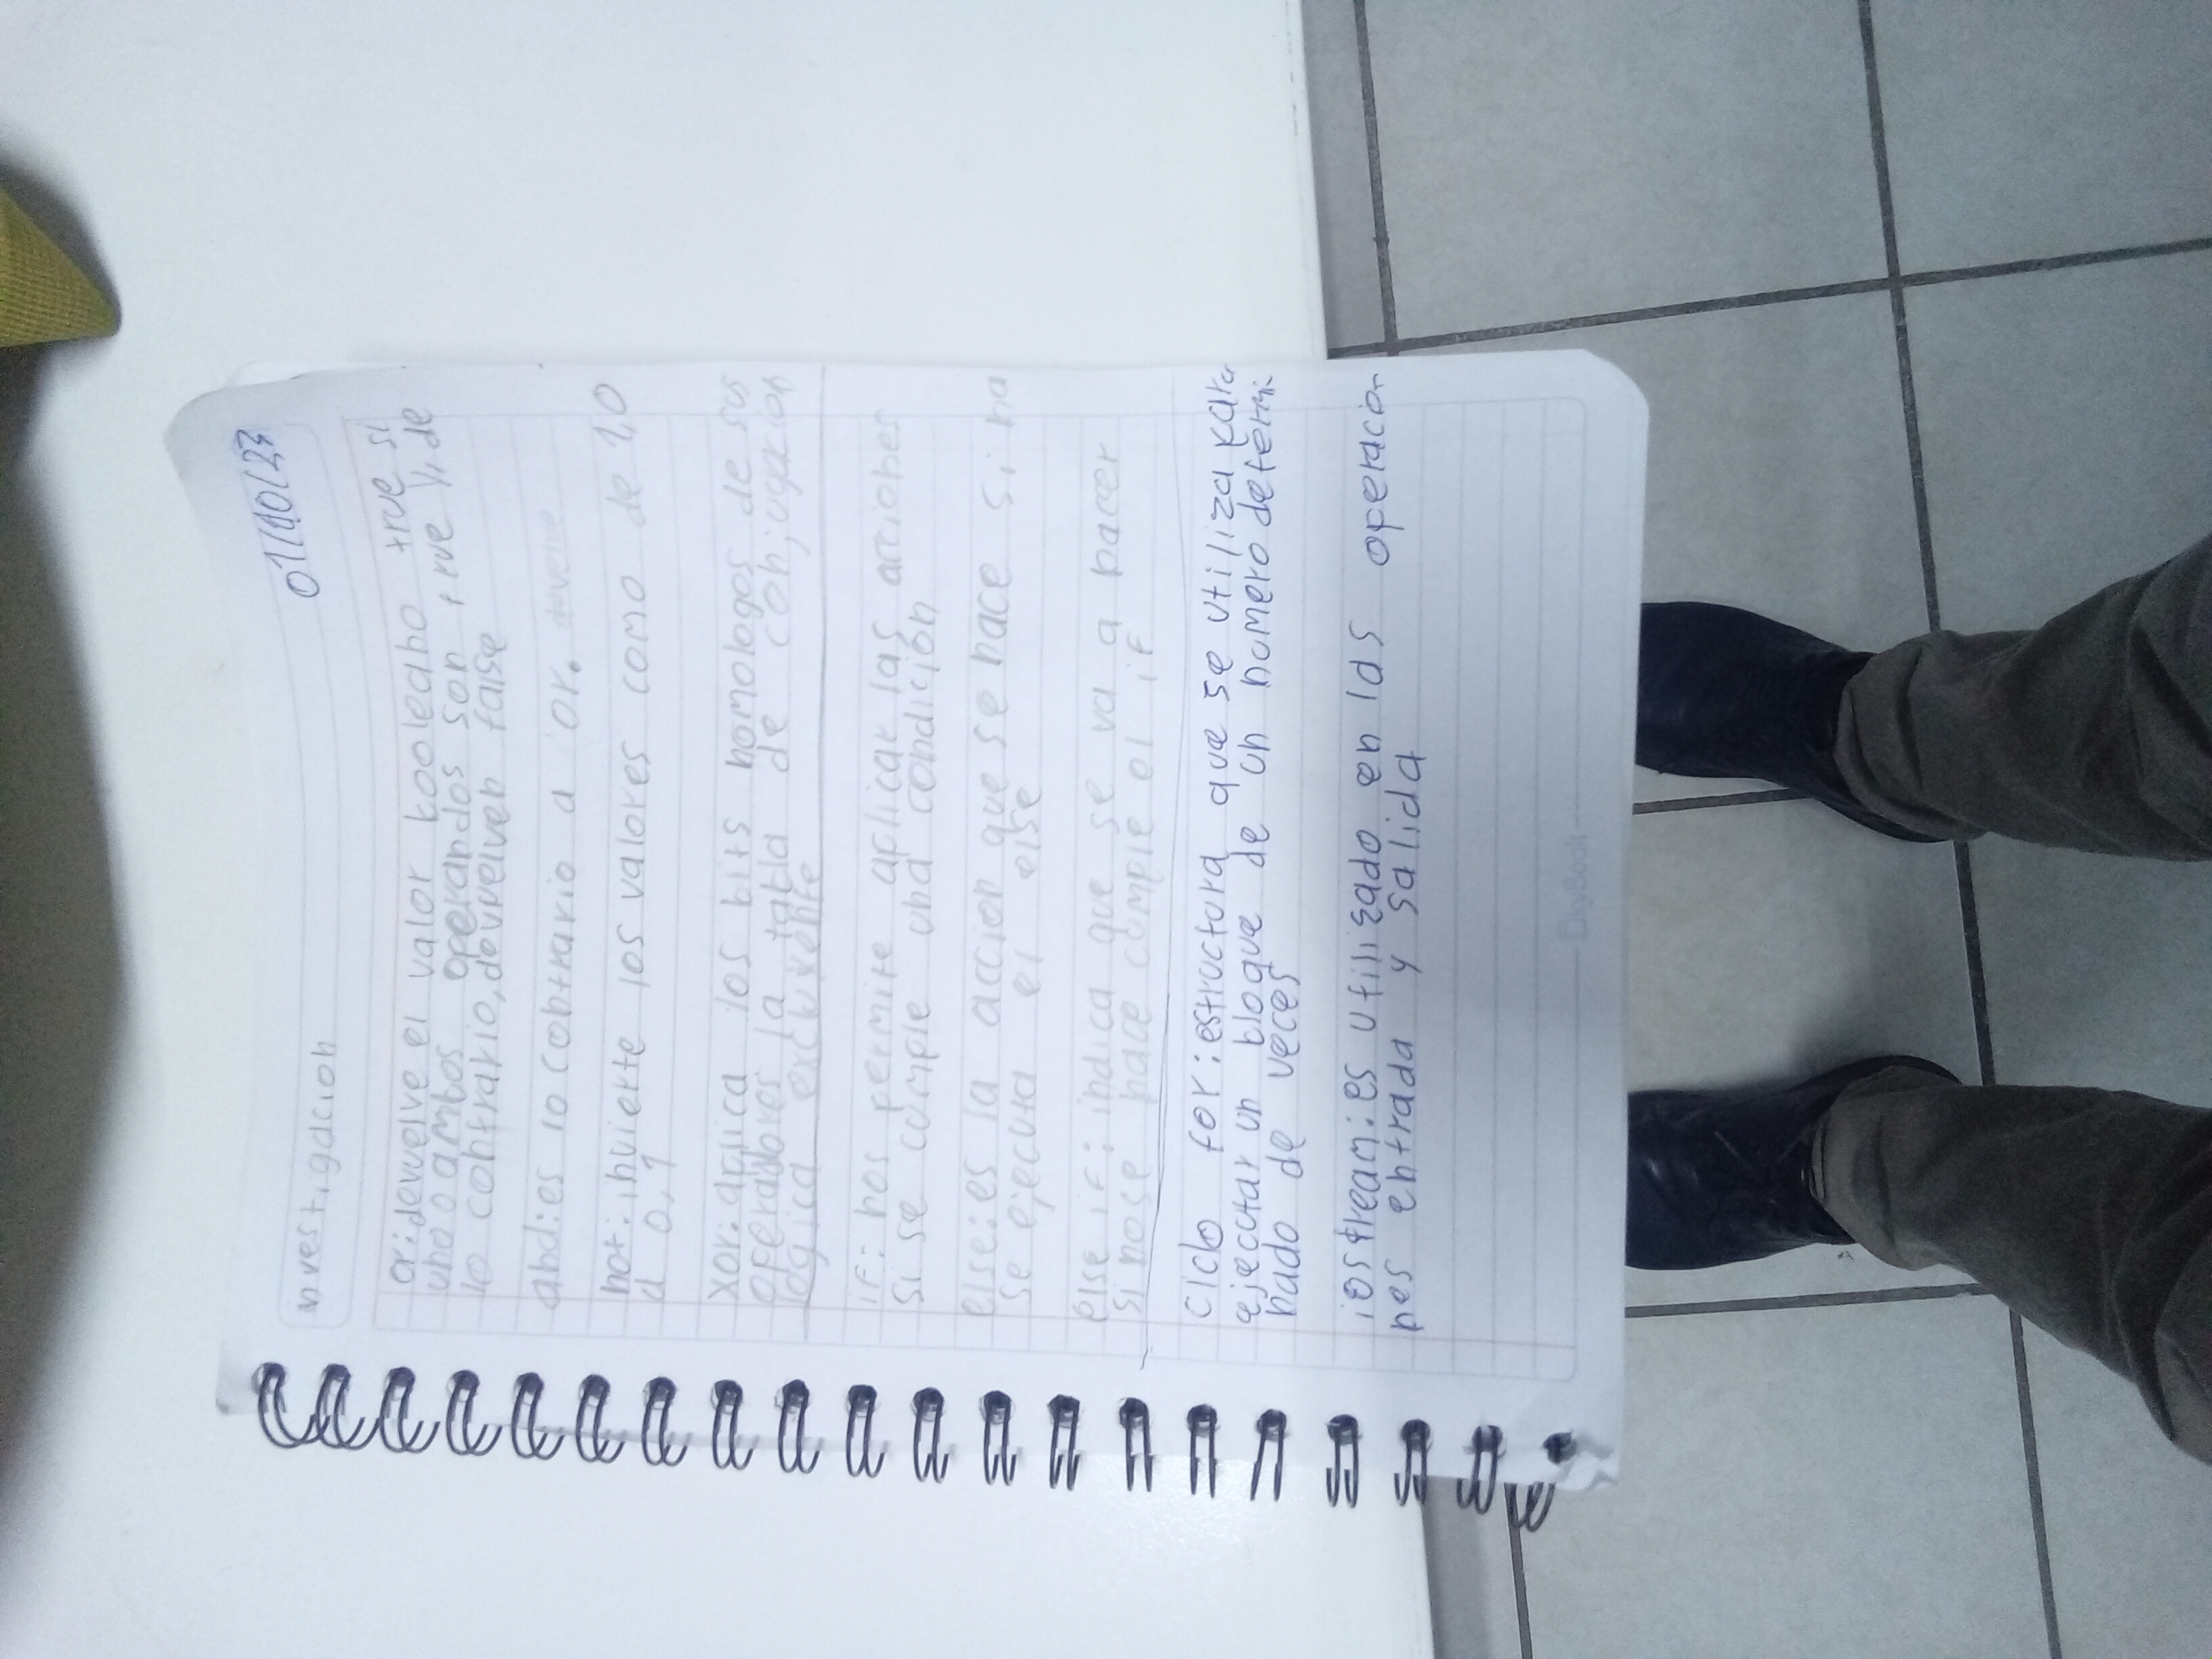 investigacion
01/10/23
or: devuelve el valor booleano true si
uno o ambos operandos son true y, de
lo contrario, devuelven false
and: es lo contrario a or.
not: invierte los valores como de 1,0
a 0,1
xor: aplica los bits homologos de sus
operadores la tabla de conjugacion
logica excluyente
if: nos permite aplicar las acciones
si se cumple una condicion
else: es la accion que se hace si no
se ejecuta el else
else if: indica que se va a hacer
si nose hace cumple el if
ciclo for: estructura que se utiliza para
ejecutar un bloque de un numero determi
nado de veces
iostream: es utilizado en las operacion
nes entrada y salida
DayBook